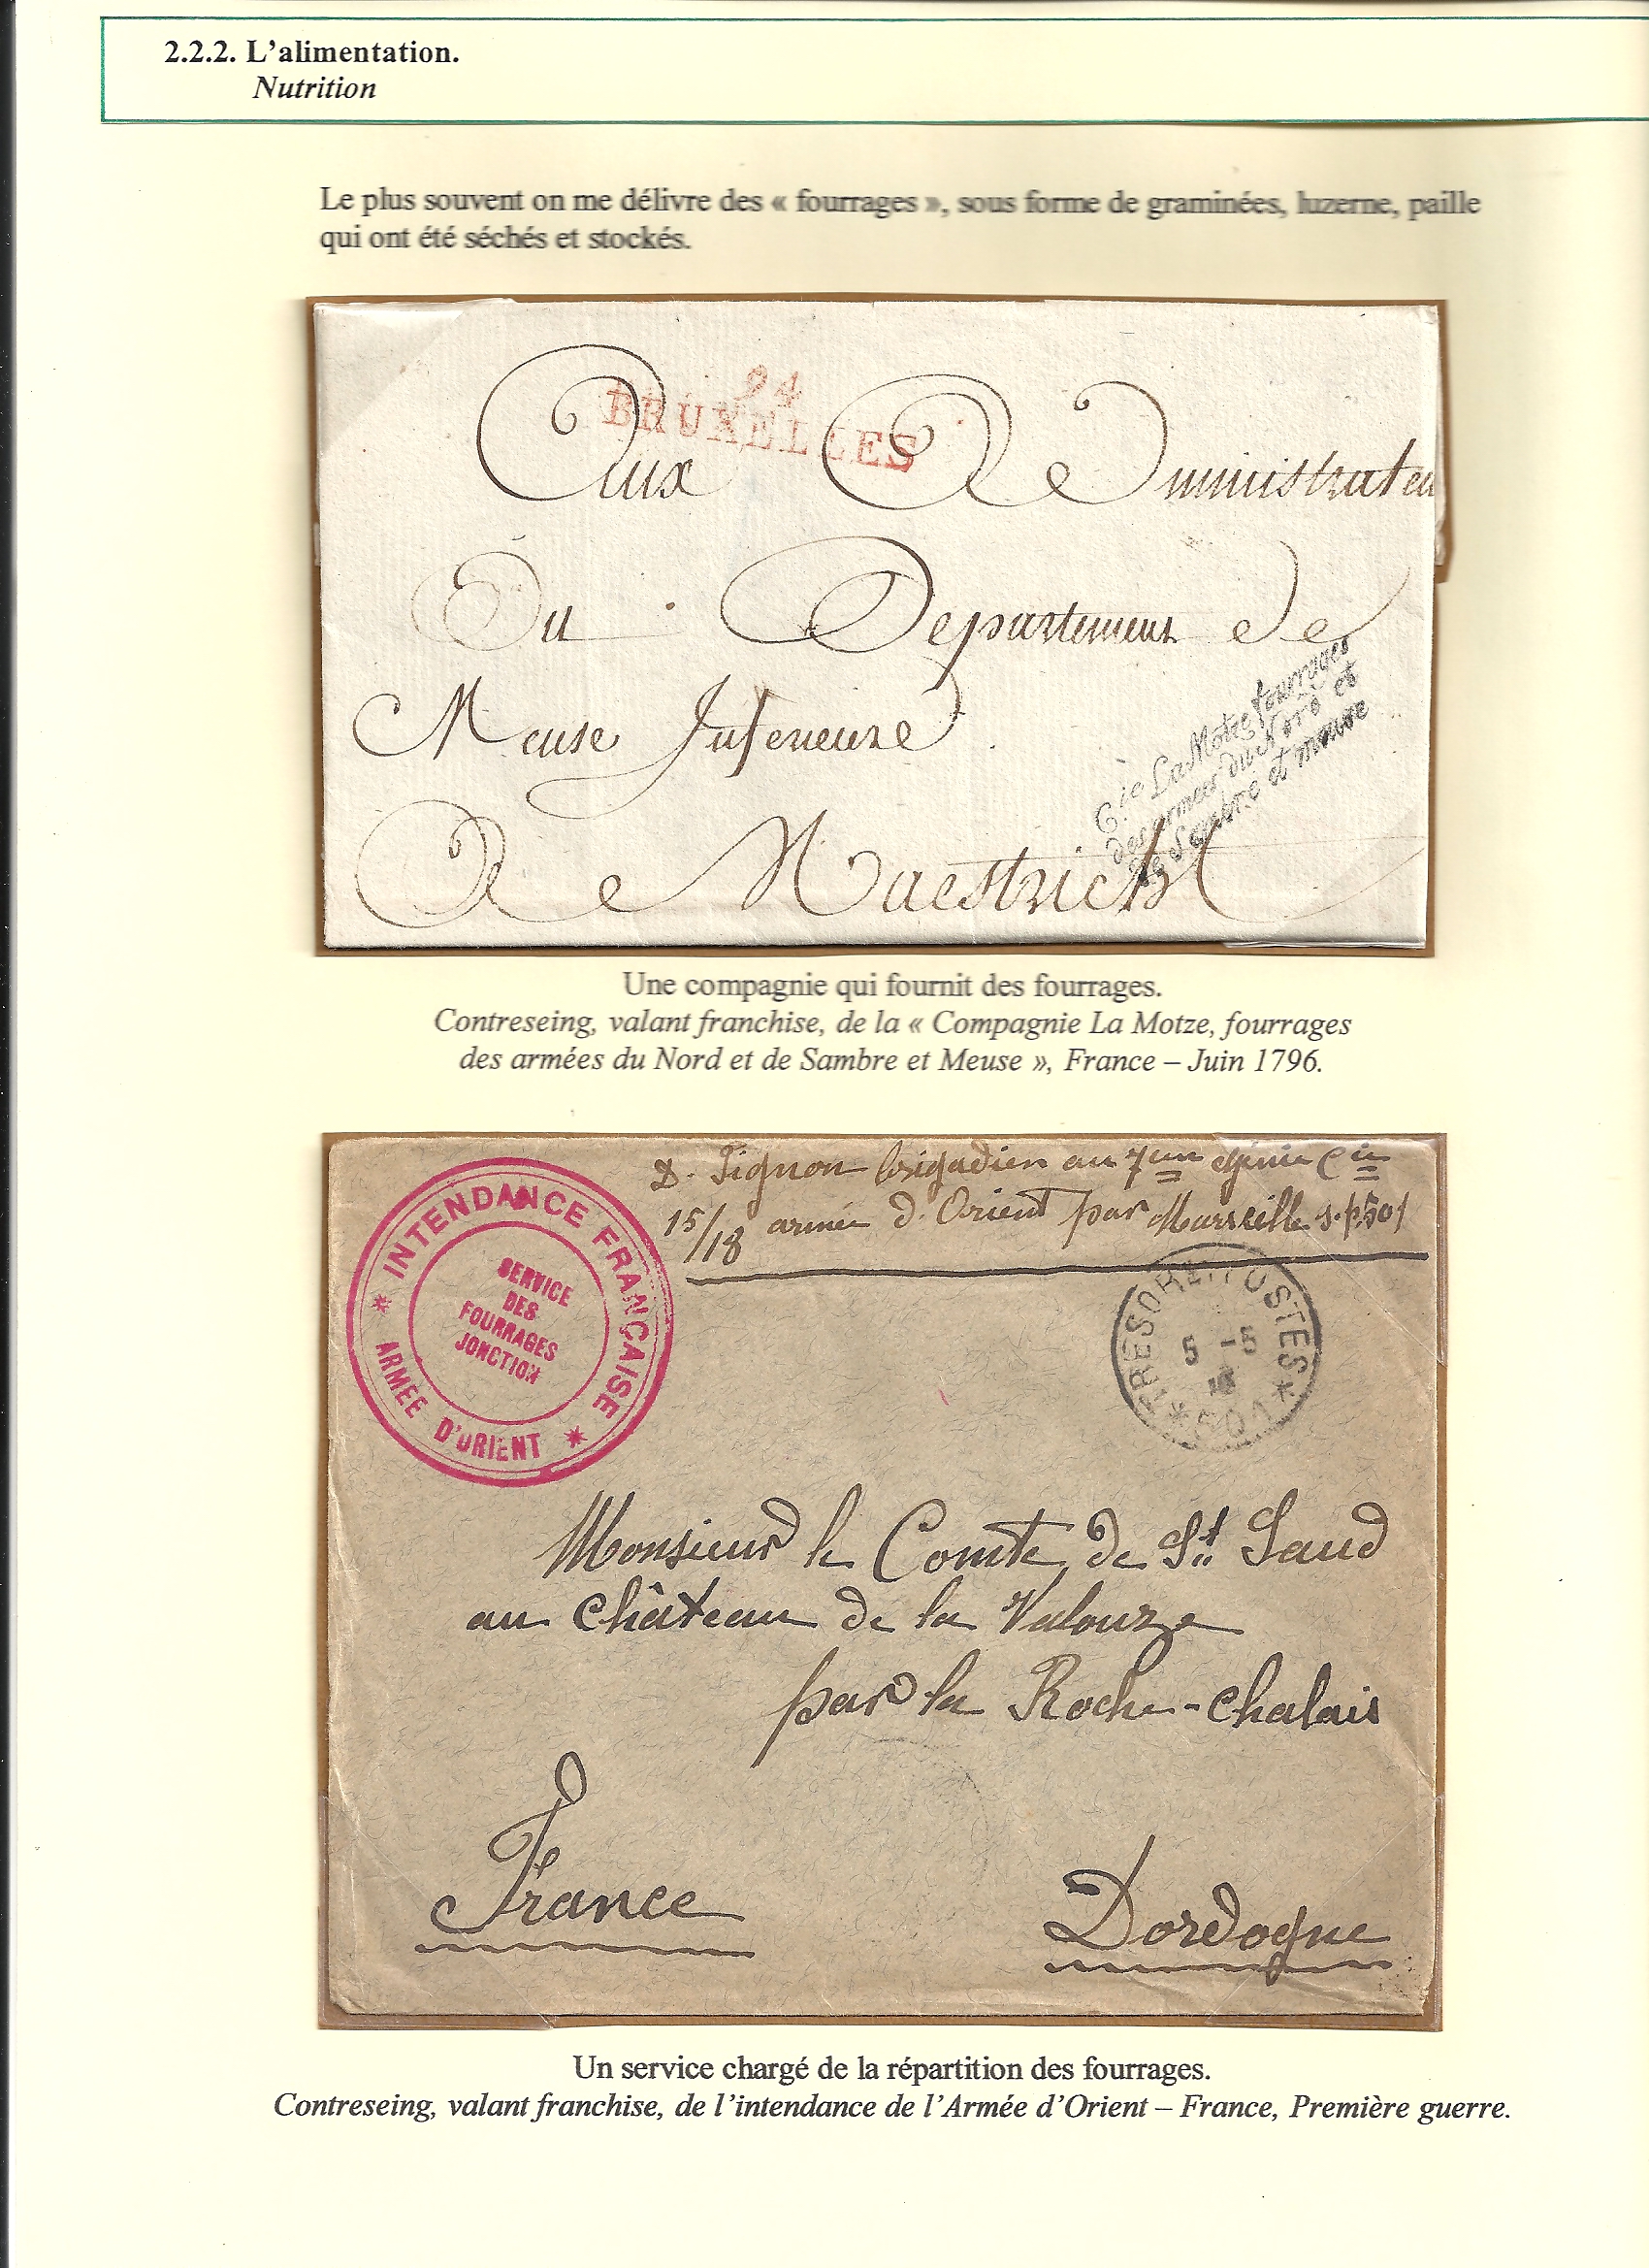 2.2.2. L'alimentation.
Nutrition
Le plus souvent on me délivre des « fourrages », sous forme de graminées, luzerne, paille
qui ont été séchés et stockés.
94
BRUXELLES
Aux Administrateu
Du Departement de
Meuse Inferieure
A Maestricht
Cie La Motze fourrages
des armées du Nord et
de Sambre et meuse
Une compagnie qui fournit des fourrages.
Contreseing, valant franchise, de la « Compagnie La Motze, fourrages
des armées du Nord et de Sambre et Meuse », France – Juin 1796.
D. Pignon brigadier au 7em Génie Cie
15/18 armée d'Orient par Marseille s.p. 501
INTENDANCE FRANÇAISE
SERVICE
DES
FOURRAGES
JONCTION
* ARMÉE D'ORIENT *
TRESOR ET POSTES
5 -5
18
* 501 *
Monsieur le Comte de St Saud
au Château de la Valouze
par la Roche-Chalais
France
Dordogne
Un service chargé de la répartition des fourrages.
Contreseing, valant franchise, de l'intendance de l'Armée d'Orient – France, Première guerre.